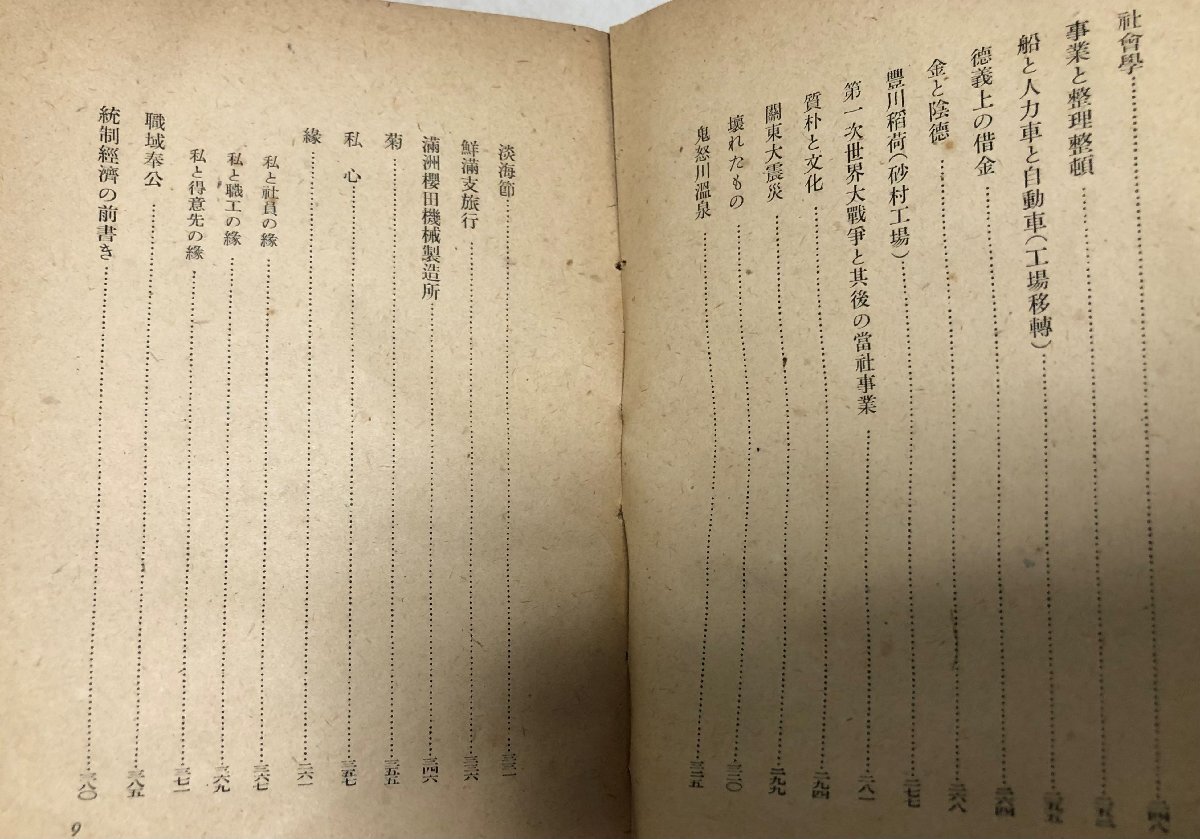 社會學……二四六
事業と整理整頓……二五三
船と人力車と自動車(工場移轉)……二五五
德義上の借金……二六四
金と陰德……二六八
豐川稻荷(砂村工場)……二七七
第一次世界大戰爭と其後の當社事業……二八一
質朴と文化……二九四
關東大震災……二九九
壞れたもの……三二〇
鬼怒川溫泉……三二五
淡海節……三三一
鮮滿支旅行……三三六
滿洲櫻田機械製造所……三四六
菊……三五五
私心……三五七
緣……三六一
私と社員の緣……三六七
私と職工の緣……三六九
私と得意先の緣……三七一
職域奉公……三八五
統制經濟の前書き……三八〇
9